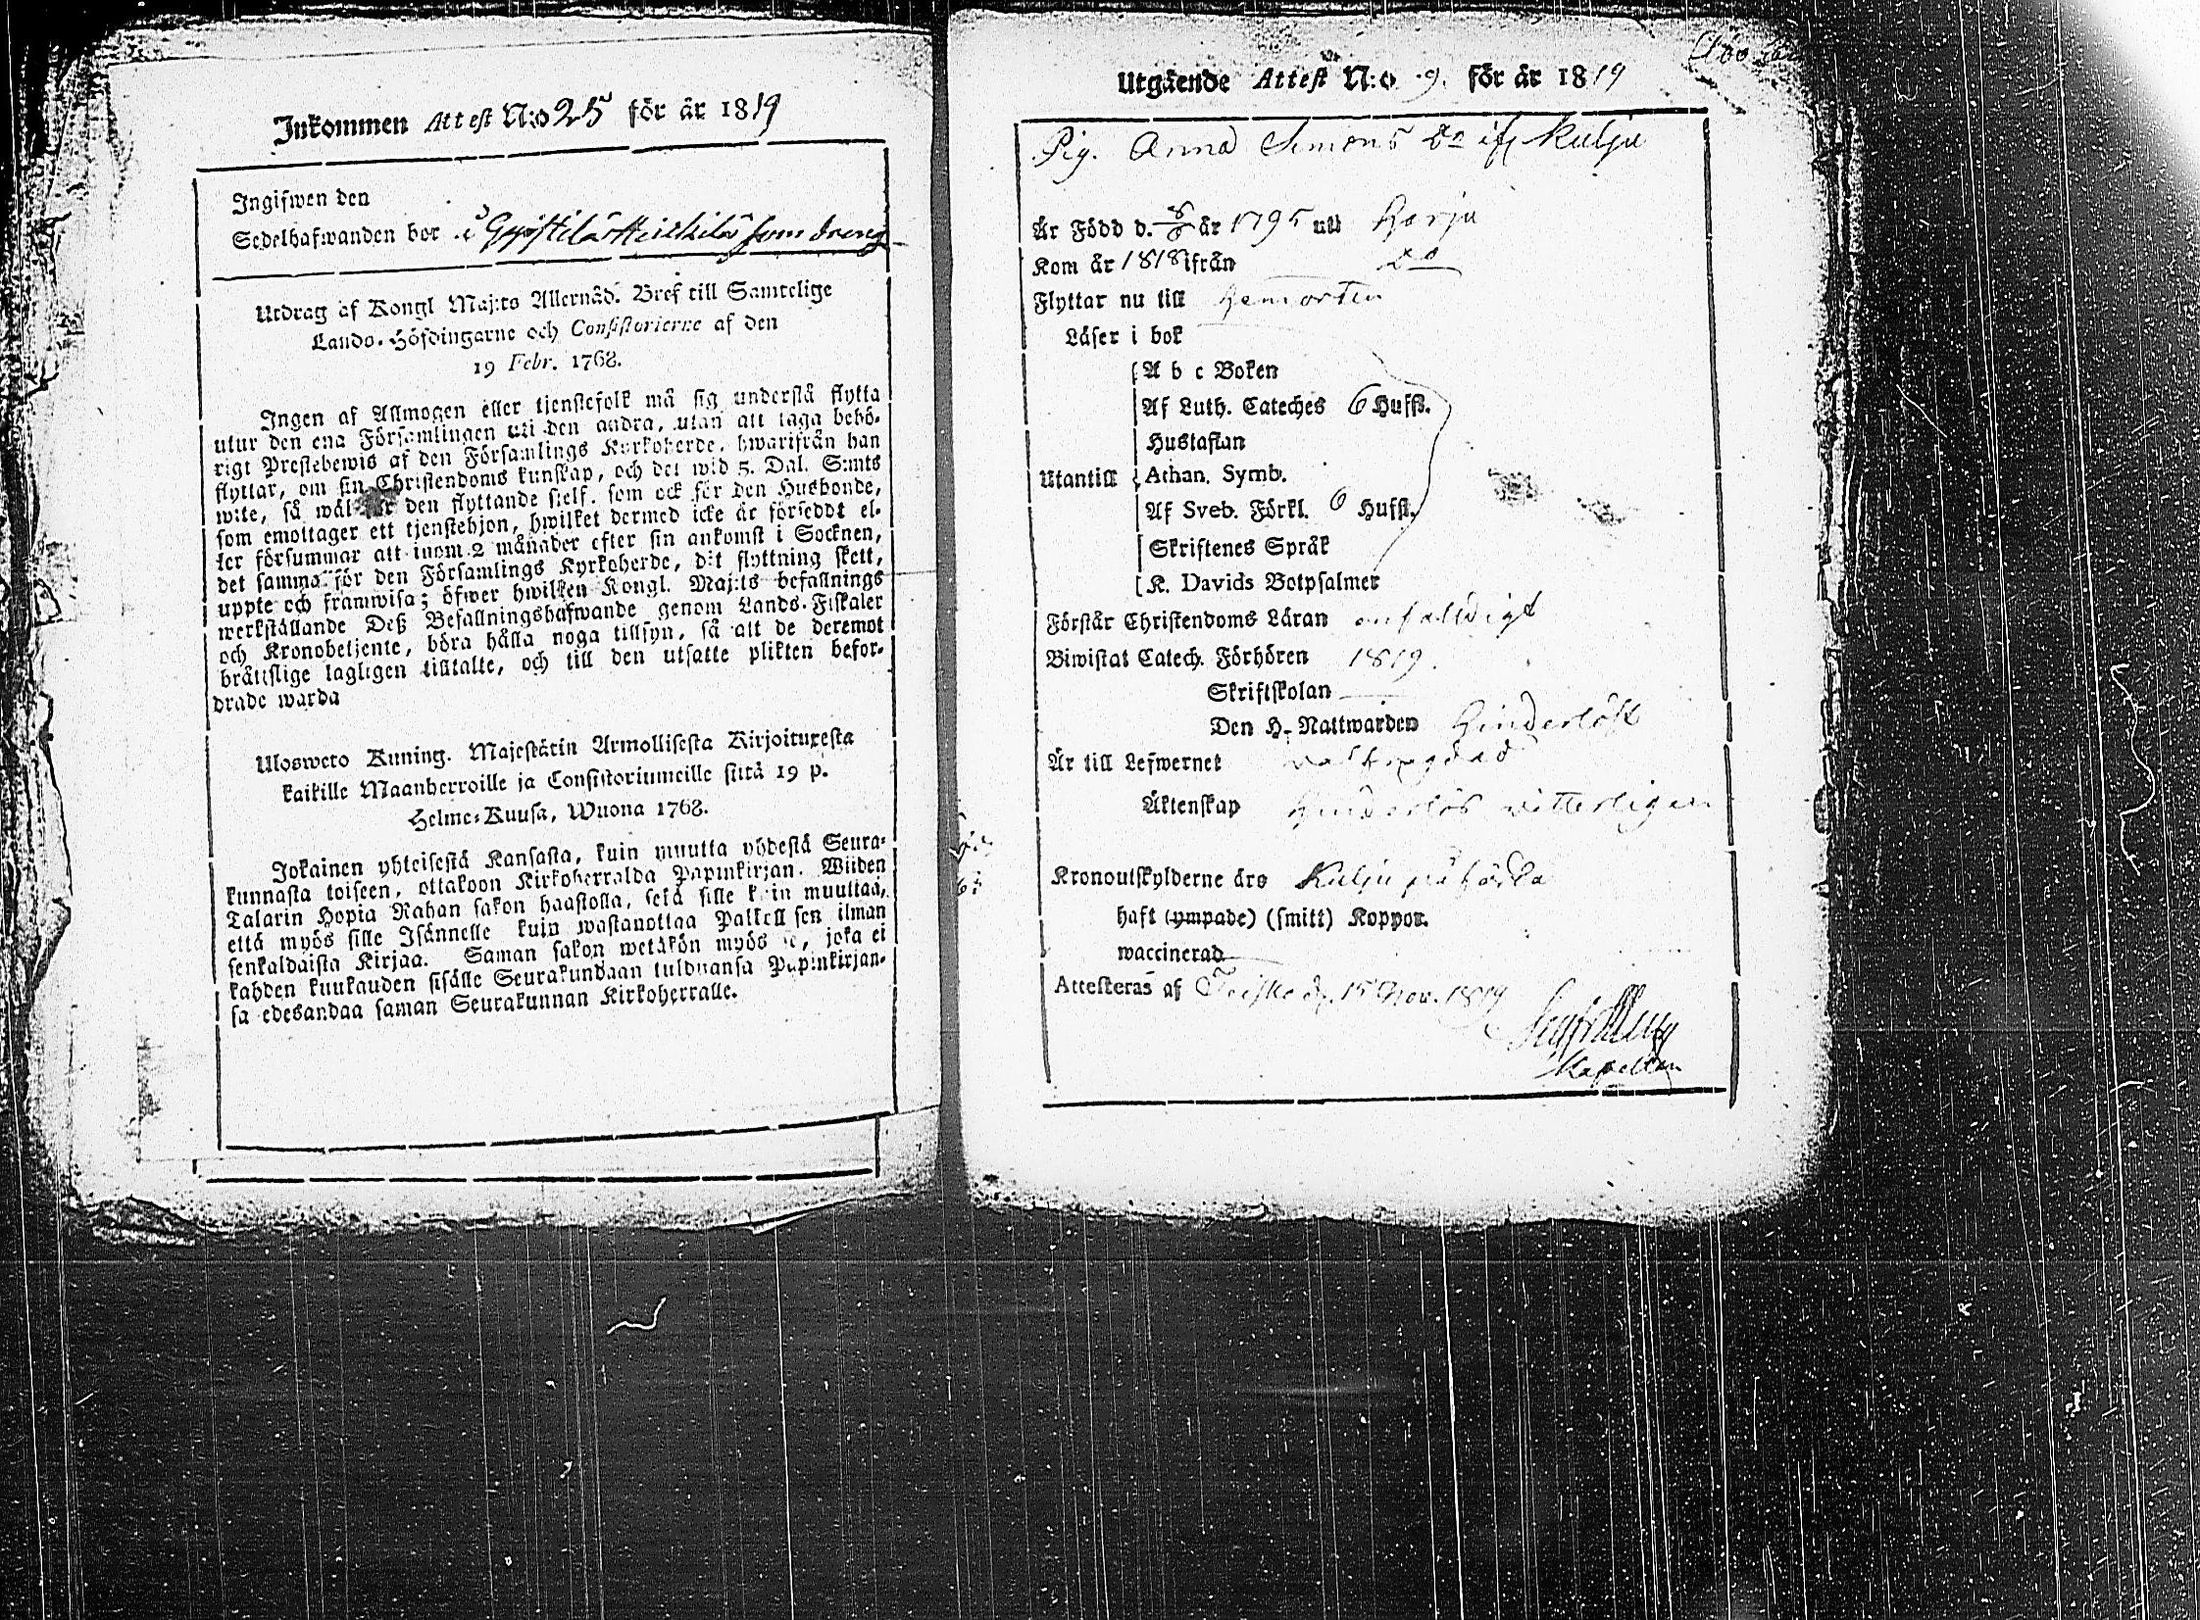 Inkommen Attest N:o 25 för år 1819
Ingifwen den
Sedelhafwanden bor i som dreng
Utdrag af Kongl Maj:ts Allernåd. Bref till Samtelige
Lands-Höfdingarne och Consistorierne af den
19 Febr. 1768.
Ingen af Allmogen eller tjenstefolk må sig understå flytta
utur den ena Församlingen uti den andra, utan att taga behö-
rigt Prestebewis af den Församlings Kyrkoherde, hwarifrån han
flyttar, om sin Christendoms kunskap, och det wid 5. Dal. S:mts
wite, så wäl för den flyttande sjelf. som ock för den Husbonde,
som emottager ett tjenstehjon, hwilket dermed icke är förseddt el-
ler försummar att inom 2 månader efter sin ankomst i Socknen,
det samma för den Församlings Kyrkoherde, dit flyttning skett,
uppte och framwisa; öfwer hwilken Kongl. Maj:ts befallnings
werkställande Deß Befallningshafwande genom Lands-Fiskaler
och Kronobetjente, böra hålla noga tillsyn, så att de deremot
bråtislige lagligen tilltalte, och till den utsatte plikten befor-
drade warda
Ulosweto Kuning. Majestätin Armollisesta Kirjoituxesta
kaikille Maanherroille ja Consistoriumeille siitä 19 p.
Helme-Kuusa, Wuona 1768.
Jokainen yhteisestä Kansasta, kuin muutta yhdestä Seura-
kunnasta toiseen, ottakoon Kirkoherralda Papinkirjan. Wiiden
Talarin Hopia Rahan sakon haastolla, sekä sille kuin muuttaa,
että myös sille Isännelle kuin wastanottaa Palkollisen ilman
senkaldaista Kirjaa. Saman sakon wetäkön myös se, joka ei
kahden kuukauden sisälle Seurakundaan tulduansa Papinkirjan-
sa edesandaa saman Seurakunnan Kirkoherralle.
Utgående Attest N:o 9. för år 1819
Pig. Anna Simons Dr ifr Kulju
Är Född d. 8/6 år 1795 uti Harju
Kom år 1818 ifrån Do
Flyttar nu till hemorten
Läser i bok
A b c Boken
Af Luth. Cateches 6 Hufst.
Hustaflan
Utantill Athan. Symb.
Af Sveb. Förkl. 6 Hufst.
Skriftenes Språk
K. Davids Botpsalmer
Förstår Christendoms Läran enfaldigt
Biwistat Catech. Förhören 1819.
Skriftskolan
Den H. Nattwarden hinderlöst
Är till Lefwernet välfrägdad
Äktenskap hinderlös witterligen
Kronoutskylderne äro Kulju påförda
haft (ympade) (smitt) Koppor.
waccinerad
Attesteras af Teisko d. 15 Nov. 1819
Kapellan